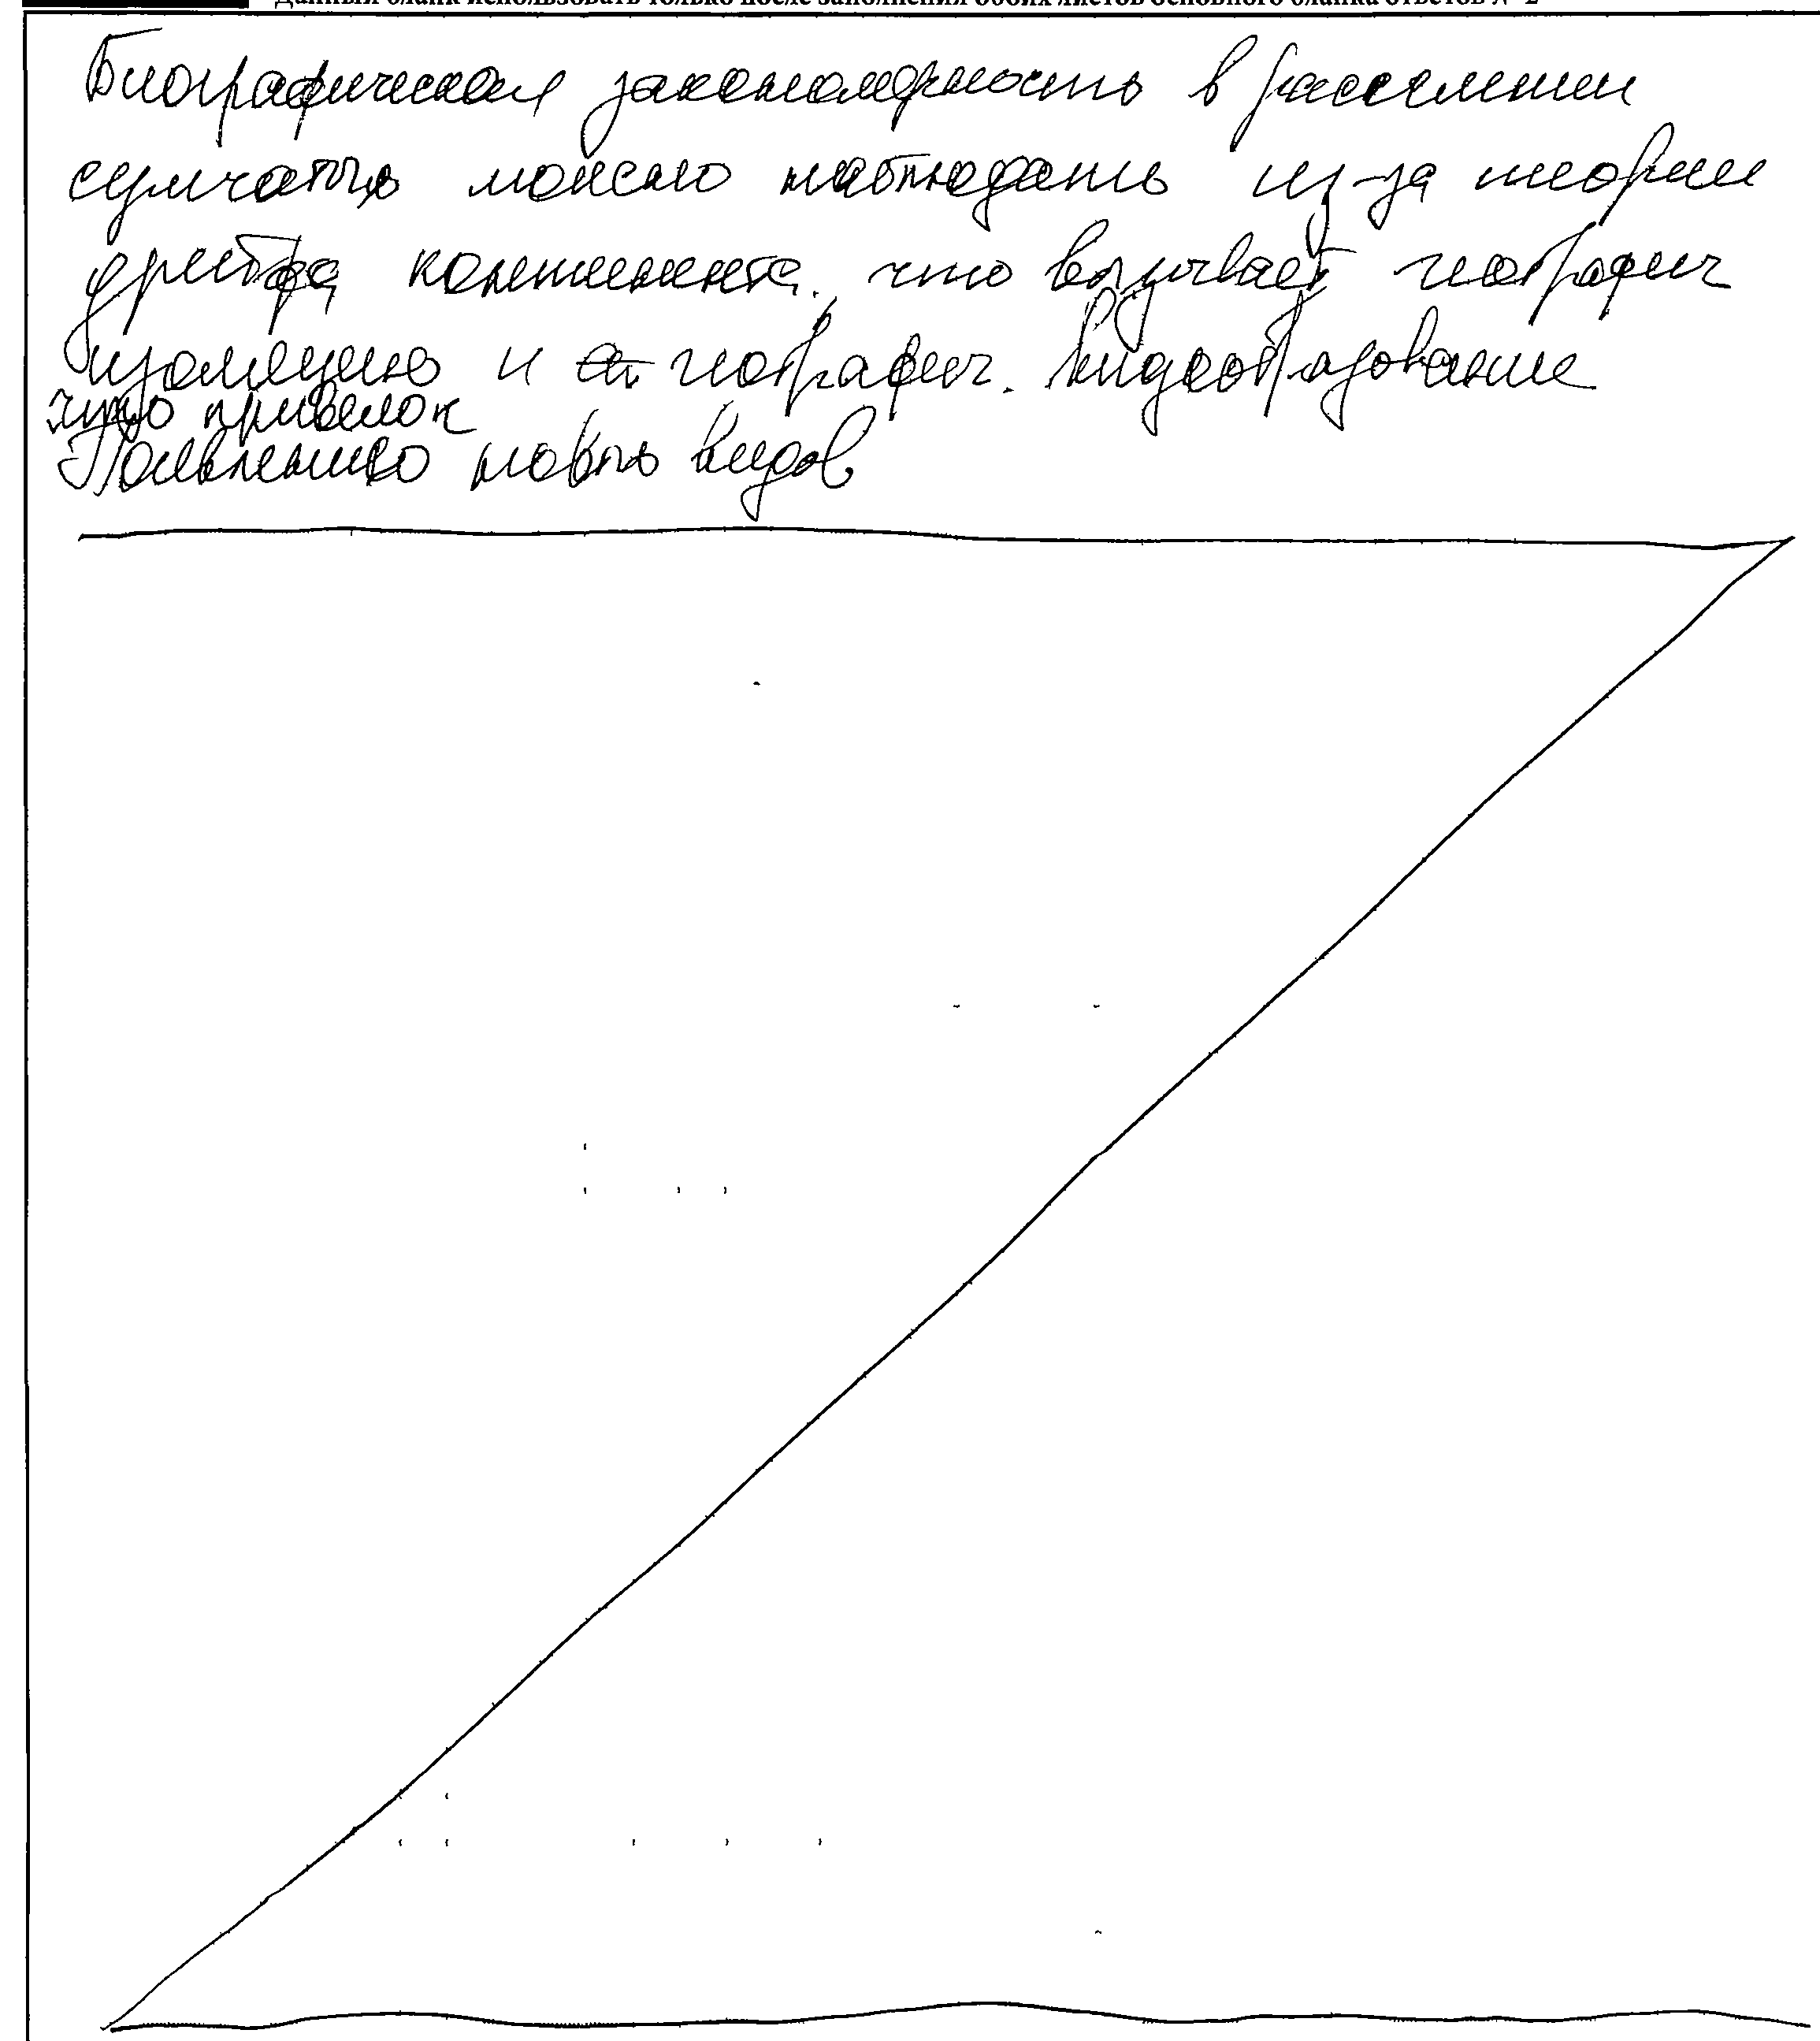 Данный бланк использовать только после заполнения обоих листов основного бланка ответов № 2
Биографическая закономерность в расселении
сумчатых можно наблюдать из-за теории
дрейфа континента, что вызывает географич
изоляцию и географич. видообразование
что привело к
Появлению новых видов